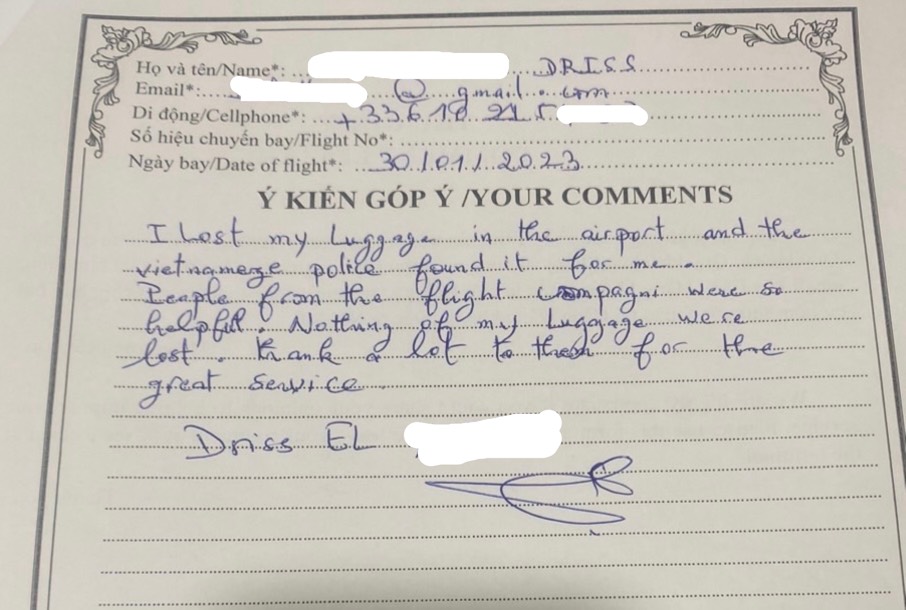 Họ và tên/Name*: DRISS
Email*: @ gmail.com
Di động/Cellphone*: +33 6 18 21 5
Số hiệu chuyến bay/Flight No*:
Ngày bay/Date of flight*: 30/01/2023
Ý KIẾN GÓP Ý /YOUR COMMENTS
I Lost my Luggage in the airport and the
vietnameze police found it for me.
People from the flight compagni were so
helpful. Nothing of my Luggage were
lost. thank a lot to them for the
great service
Driss EL